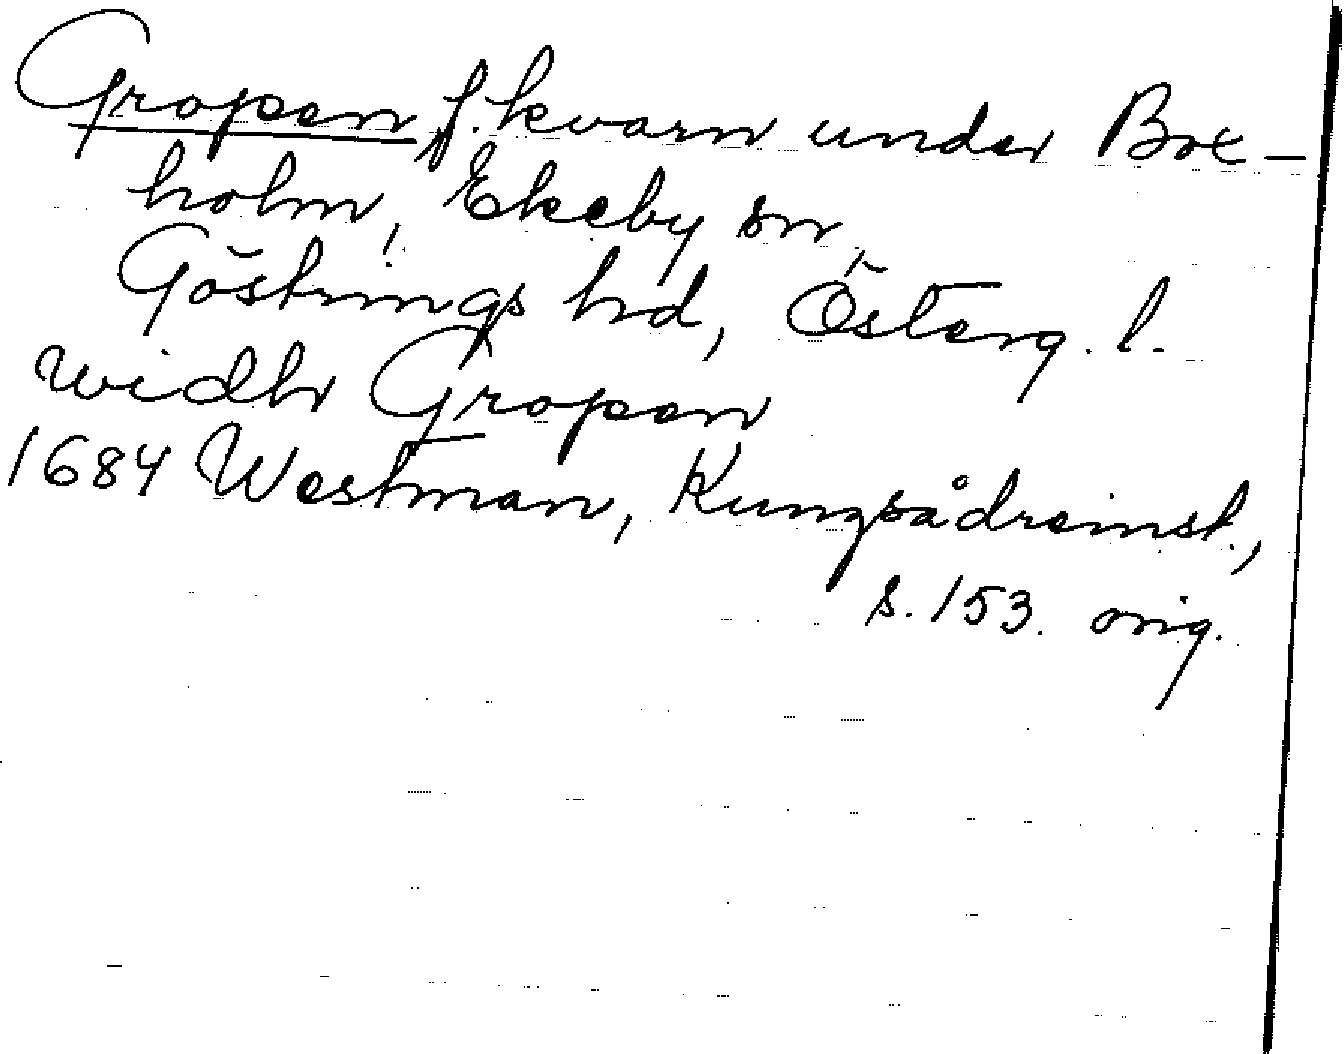 Gropen f. kvarn under Box-
holm, Ekeby sn,
Göstrings hd, Österg. l.
widh Gropen
1684 Westman, Kungsådreinst.,
s. 153. orig.